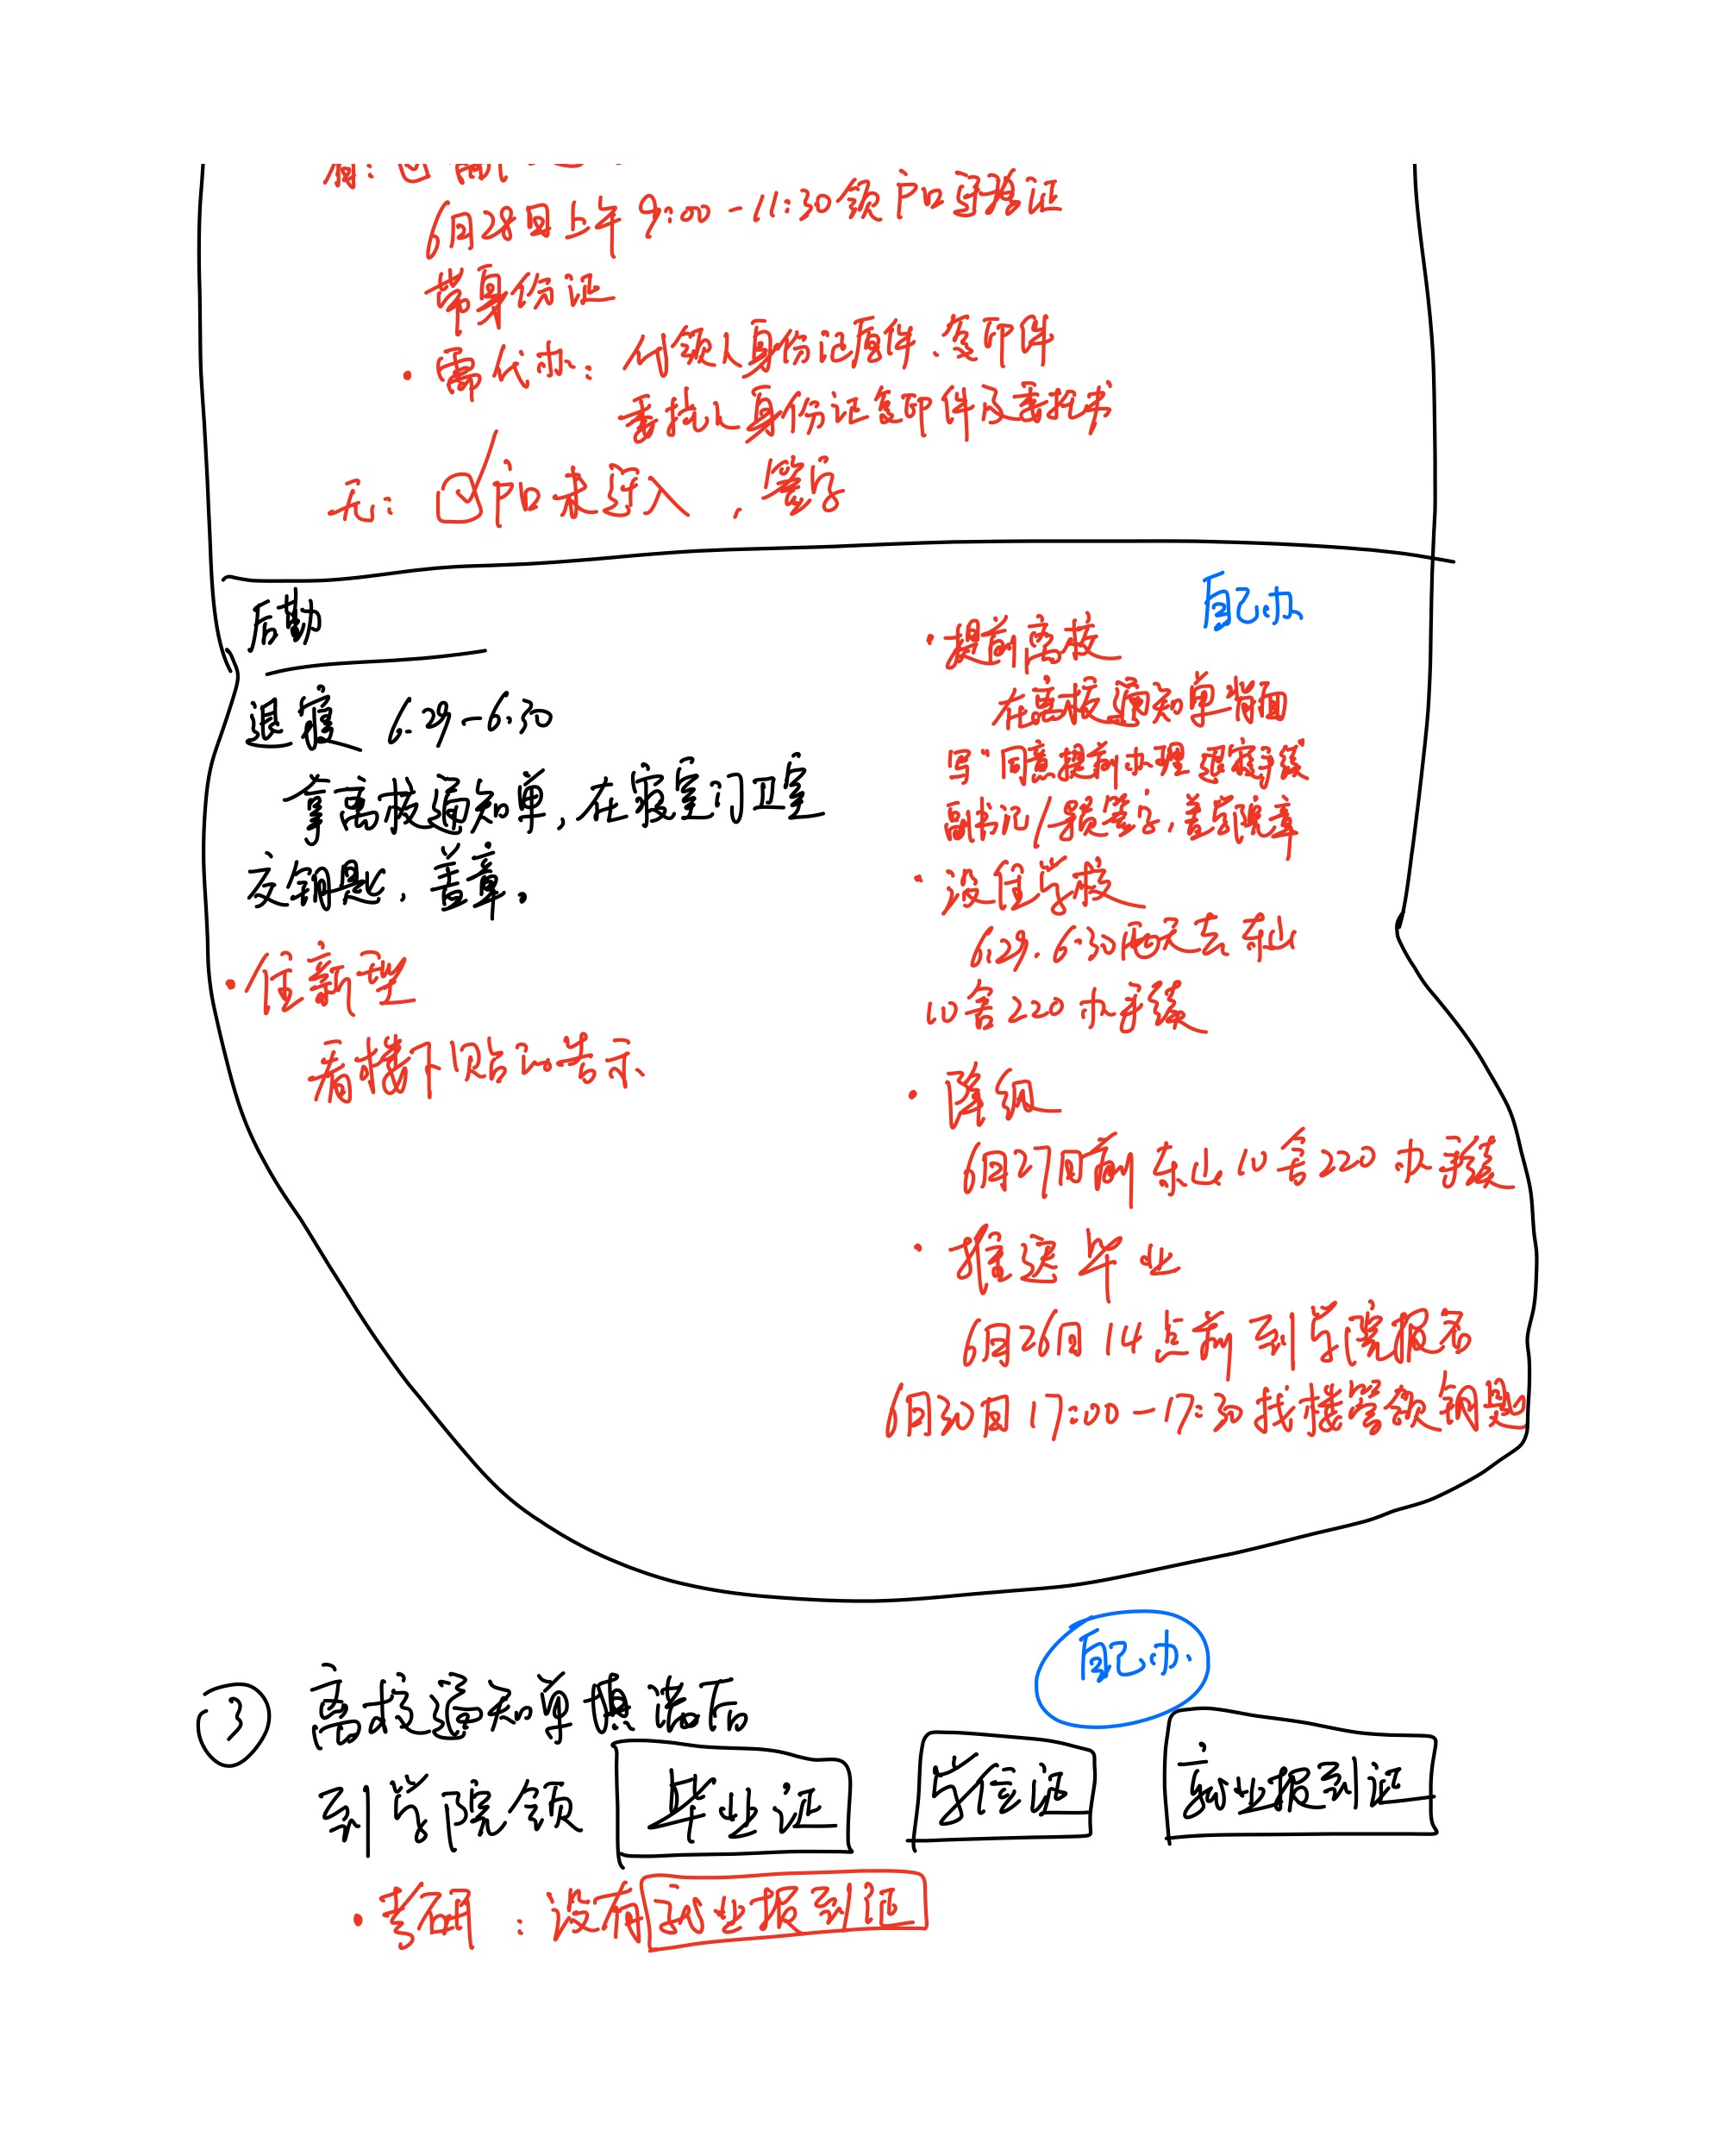 6月28日上午9:00-11:30领户口迁移证
带身份证
·需代办：代领人身份证原件、复印件
委托人身份证复印件及委托书
无：☑户口未迁入，签字
后勤
退寝 6.29-6.30
拿离校通知单，在寝室门卫室
交钥匙，盖章。
·住新型
看楼下贴的告示
自己办
·提前离校
在离校通知单背面
写“同意提前办理退寝手续
副书记/导员签字，盖学院章
·没住学校
6.29.6.30两天去东山
10舍220办手续
·降级
6月27日前东山10舍220办手续
·推迟毕业
6月26日14点前到学院报名
6月30日17:00-17:30找楼管领钥匙
③ 离校通知单填满后
自己办
到学院领 毕业证 学位证 就业报到证
·考研：没有就业报到证